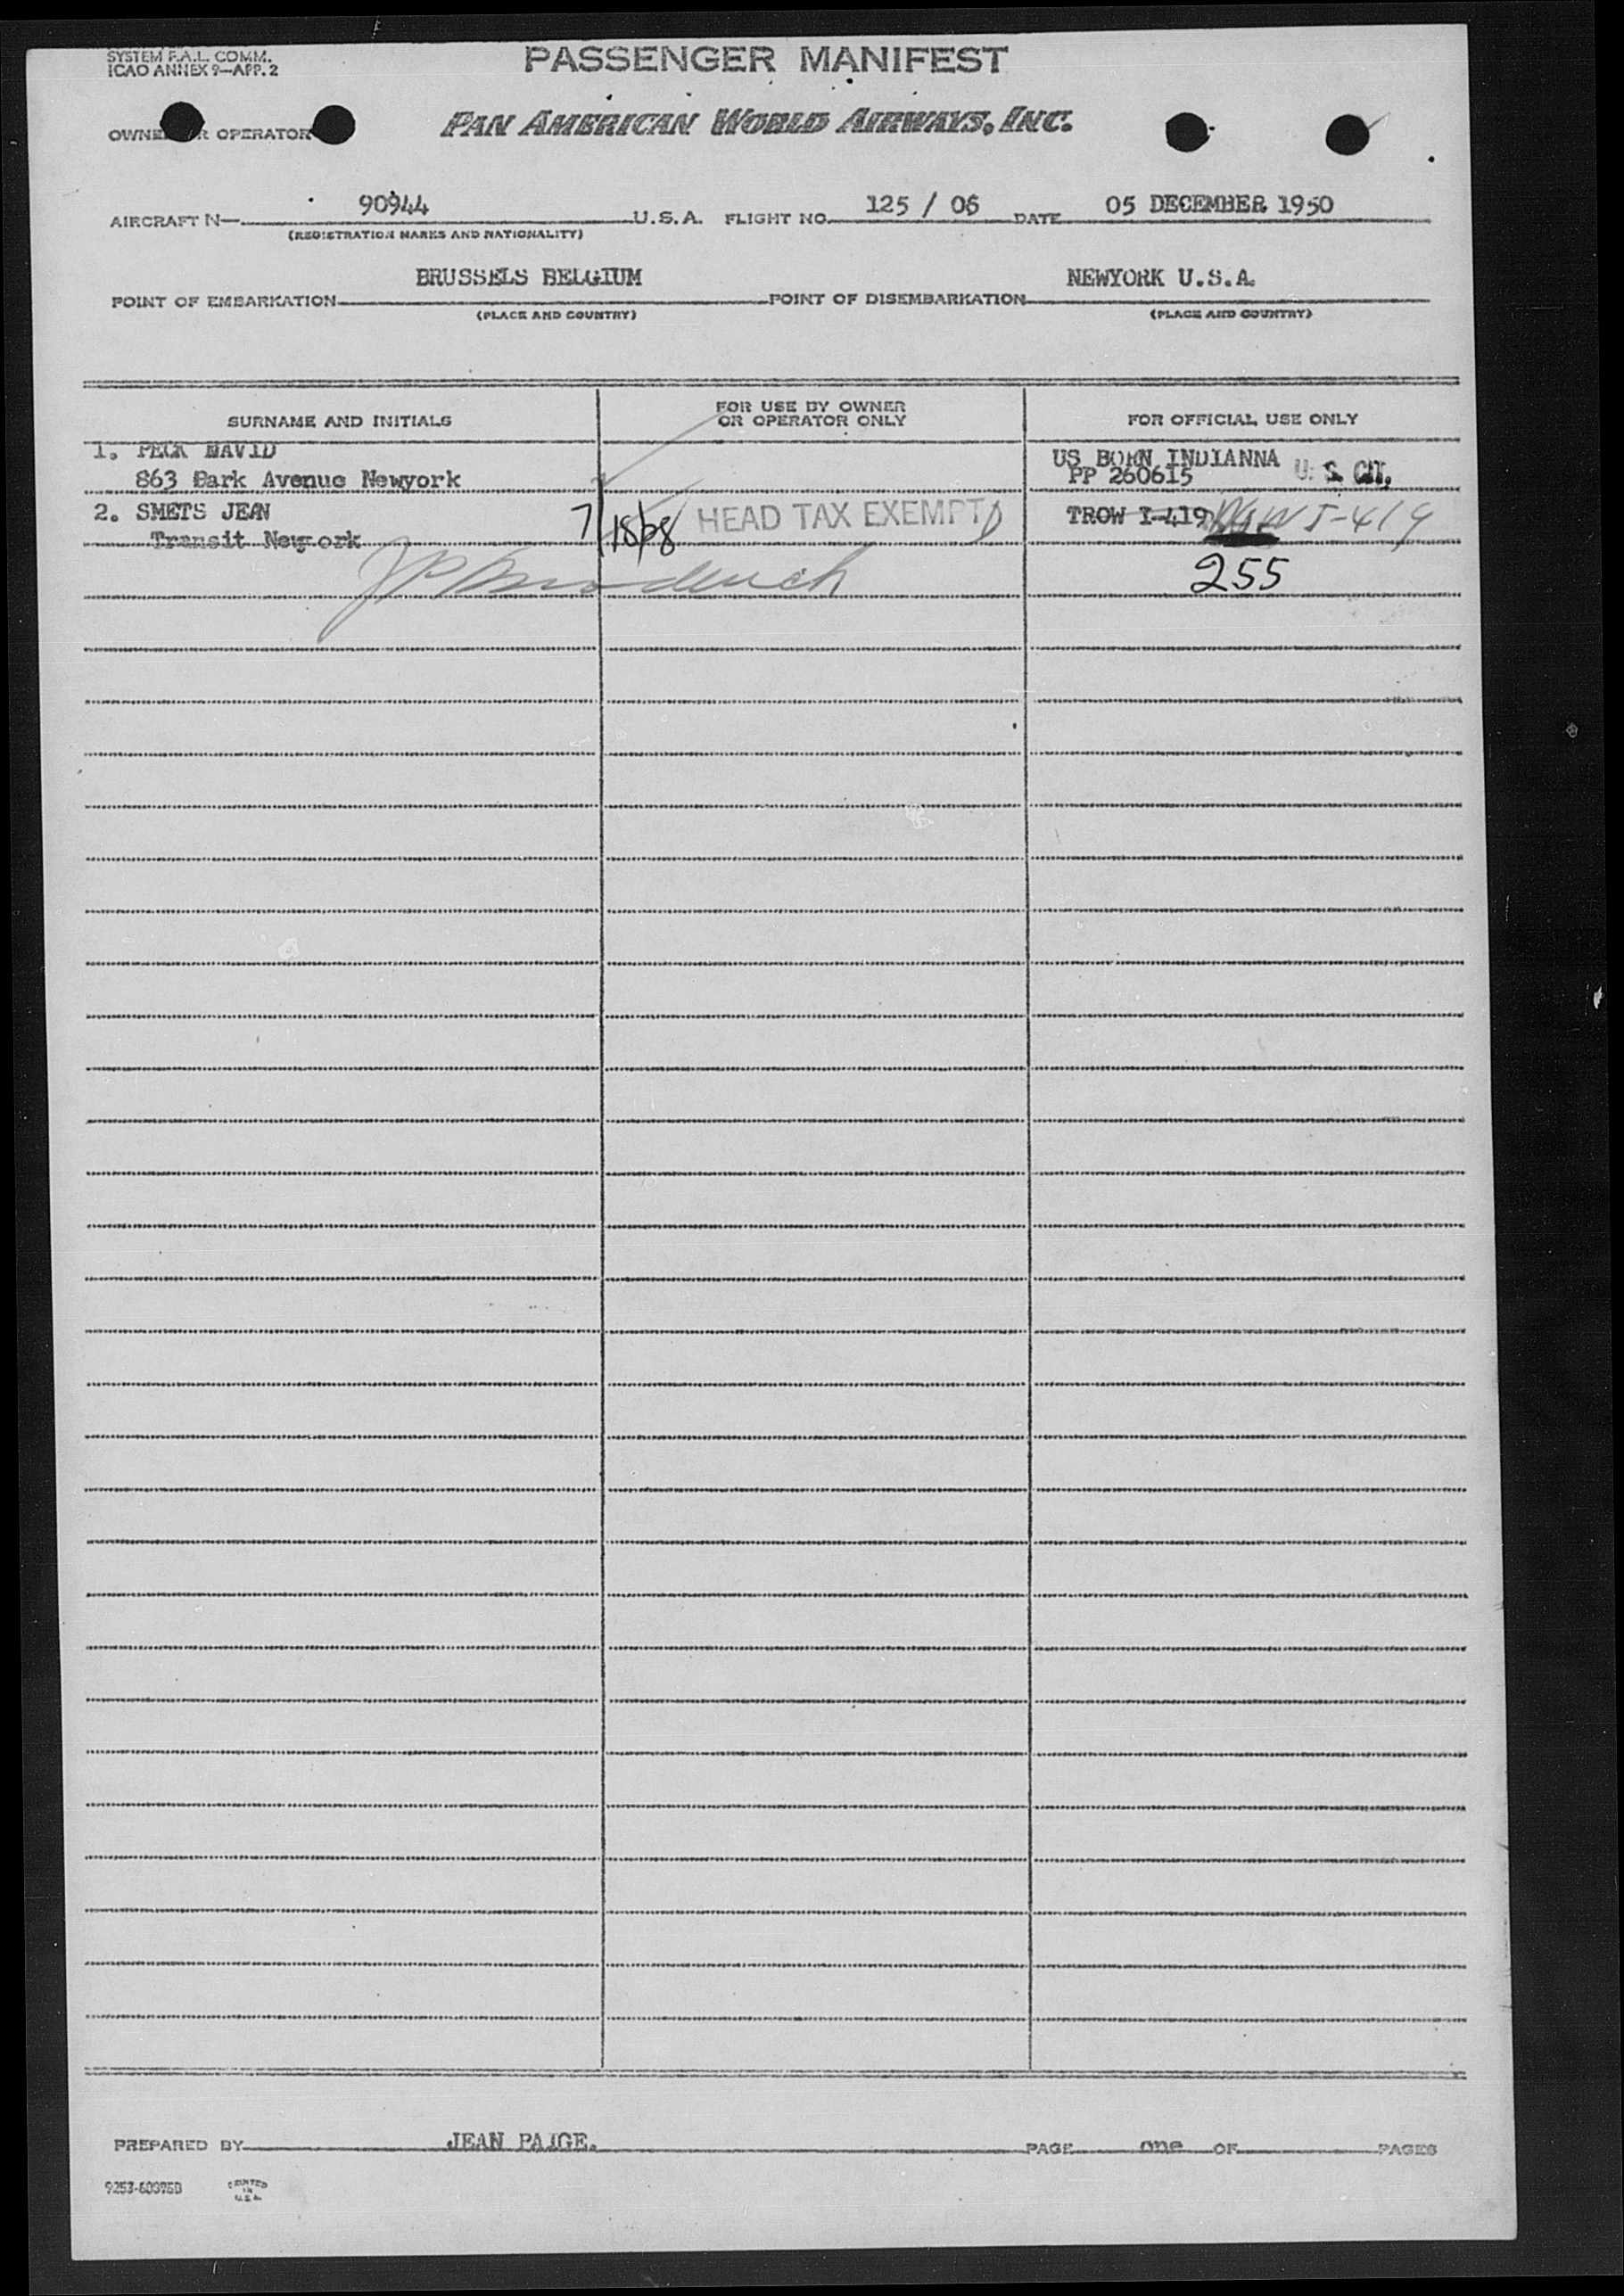 SYSTEM F.A.L. COMM.
ICAO ANNEX 9—APP. 2
PASSENGER MANIFEST
OWNER OR OPERATOR PAN AMERICAN WORLD AIRWAYS, INC.
AIRCRAFT N— 90944 U.S.A. FLIGHT NO. 125 / 06 DATE 05 DECEMBER 1950
(REGISTRATION MARKS AND NATIONALITY)
POINT OF EMBARKATION BRUSSELS BELGIUM POINT OF DISEMBARKATION NEWYORK U.S.A.
(PLACE AND COUNTRY) (PLACE AND COUNTRY)
SURNAME AND INITIALS
FOR USE BY OWNER
OR OPERATOR ONLY
FOR OFFICIAL USE ONLY
1. PECK DAVID US BORN INDIANNA
863 Park Avenue Newyork PP 260615 U. S. CIT.
2. SMETS JEAN 7/18/68 HEAD TAX EXEMPT TROW I-419 I-419
Transit Newyork
255
PREPARED BY JEAN PAIGE. PAGE one OF PAGES
PRINTED
IN
U.S.A.